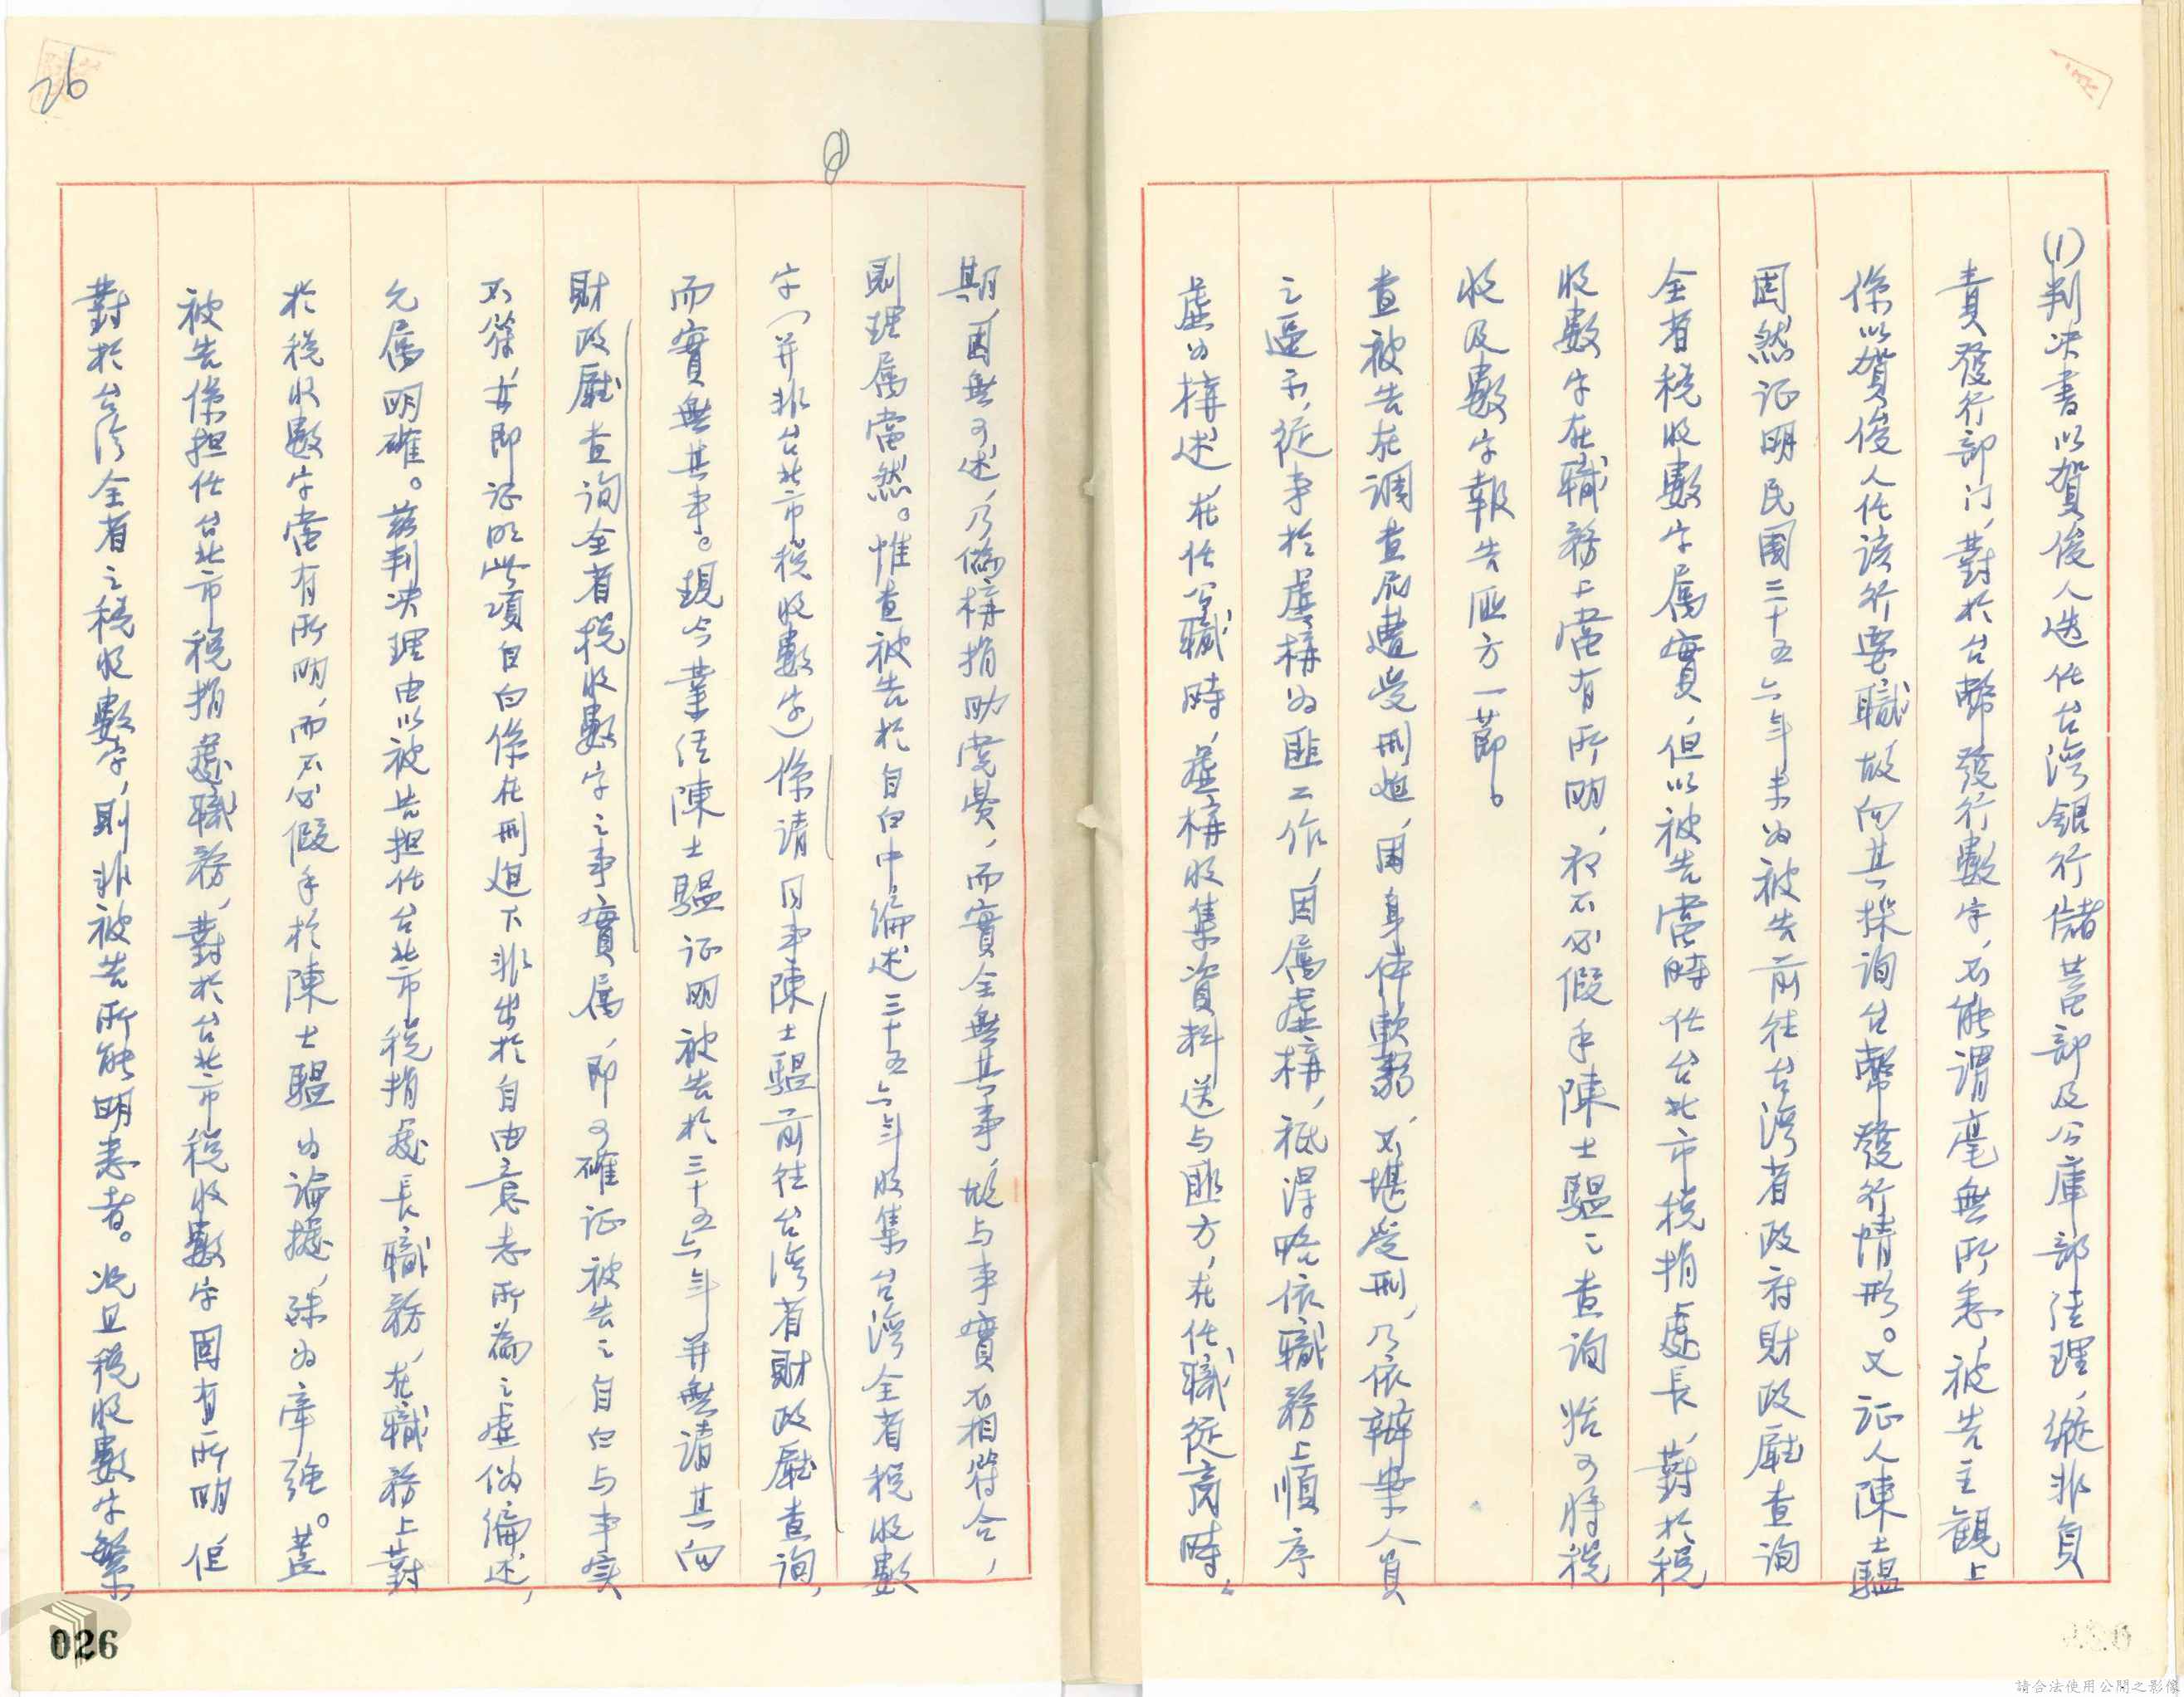 (1)判决書以贺俊人迭任台湾銀行儲蓄部及公庫部経理，縱非負
責發行部门，對於台幣發行數字，不能謂毫無所悉，被告主観上
係以贺俊人任該行要職故向其探询台幣發行情形。又证人陳士驅
固然证明民國三十五六年未为被告前往台湾省政府財政廳查询
全省稅收數字属實，但以被告當時任台北市稅捐處長，對於稅
收數字在職務上當有所明，初不必假手陳士驅之查询始可将稅
收及數字報告匪方一節。
查被告在调查局遭受刑廹，因身体軟弱，不堪受刑，乃依辦案人員
之逼示，從事於虛構为匪工作，因属虛構，祗得略依職務上順序
虛为構述，在任公職時，虛構收集資料送与匪方，在任職從商時，
期，因無可述，乃偽構捐助党费，而實全無其事，故与事實不相符合，
則理属當然。惟查被告於自白中编述三十五六年收集台湾全省稅收數
字（并非台北市稅收數字）係请同事陳士驅前往台湾省財政廳查询，
而實無其事。現今業经陳士驅证明被告於三十五六年并無请其向
財政廳查询全省稅收數字之事實属，即可確证被告之自白与事实
不符，亦即证明此項自白係在刑廹下非出於自由意志所為之虛偽编述，
允属明確。兹判决理由以被告担任台北市稅捐處長職務，在職務上對
於稅收數字當有所明，而不必假手於陳士驅为論據，殊为牽强。蓋
被告係担任台北市稅捐處職務，對於台北市稅收數字固有所明但
對於台湾全省之稅收數字，則非被告所能明悉者。况且稅收數字繁
26
026
請合法使用公開之影像